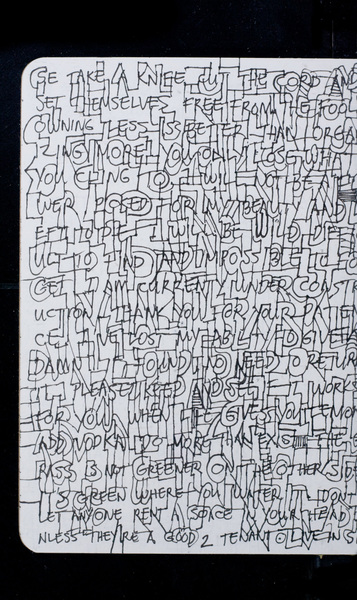 GE TAKE A KNIFE CUT THE CORD AN
SET THEMSELVES FREE FROM THE FOOL
OWNING LESS IS BETTER THAN ORGA
ZING MORE YOU ONLY LOSE WHA
YOU CLING TO I WILL NOT BE A
WER POSED FOR MY BEAUTY AND
EFT TO DIE I WILL BE WILD DIFF
ULT TO FIND AND IMPOSSIBLE TO FO
GET I AM CURRENTLY UNDER CONSTR
UCTION THANK YOU FOR YOUR PATIEN
CE I'VE LOST MY ABILITY TO GIVE
DAMN IF FOUND NO NEED TO RETUR
IT PLEASE KEEP AND SEE IF IT WORKS
FOR YOU WHEN GIVES YOU LEMO
ADD VODKA DO MORE THAN EXIST THE G
RASS IS NOT GREENER ON THE OTHER SID
IT IS GREEN WHERE YOU WATER IT DON'T
LET ANYONE RENT A SPACE YOUR HEAD
NLESS THEY'RE A GOOD 2 TENANT TO LIVE IN S